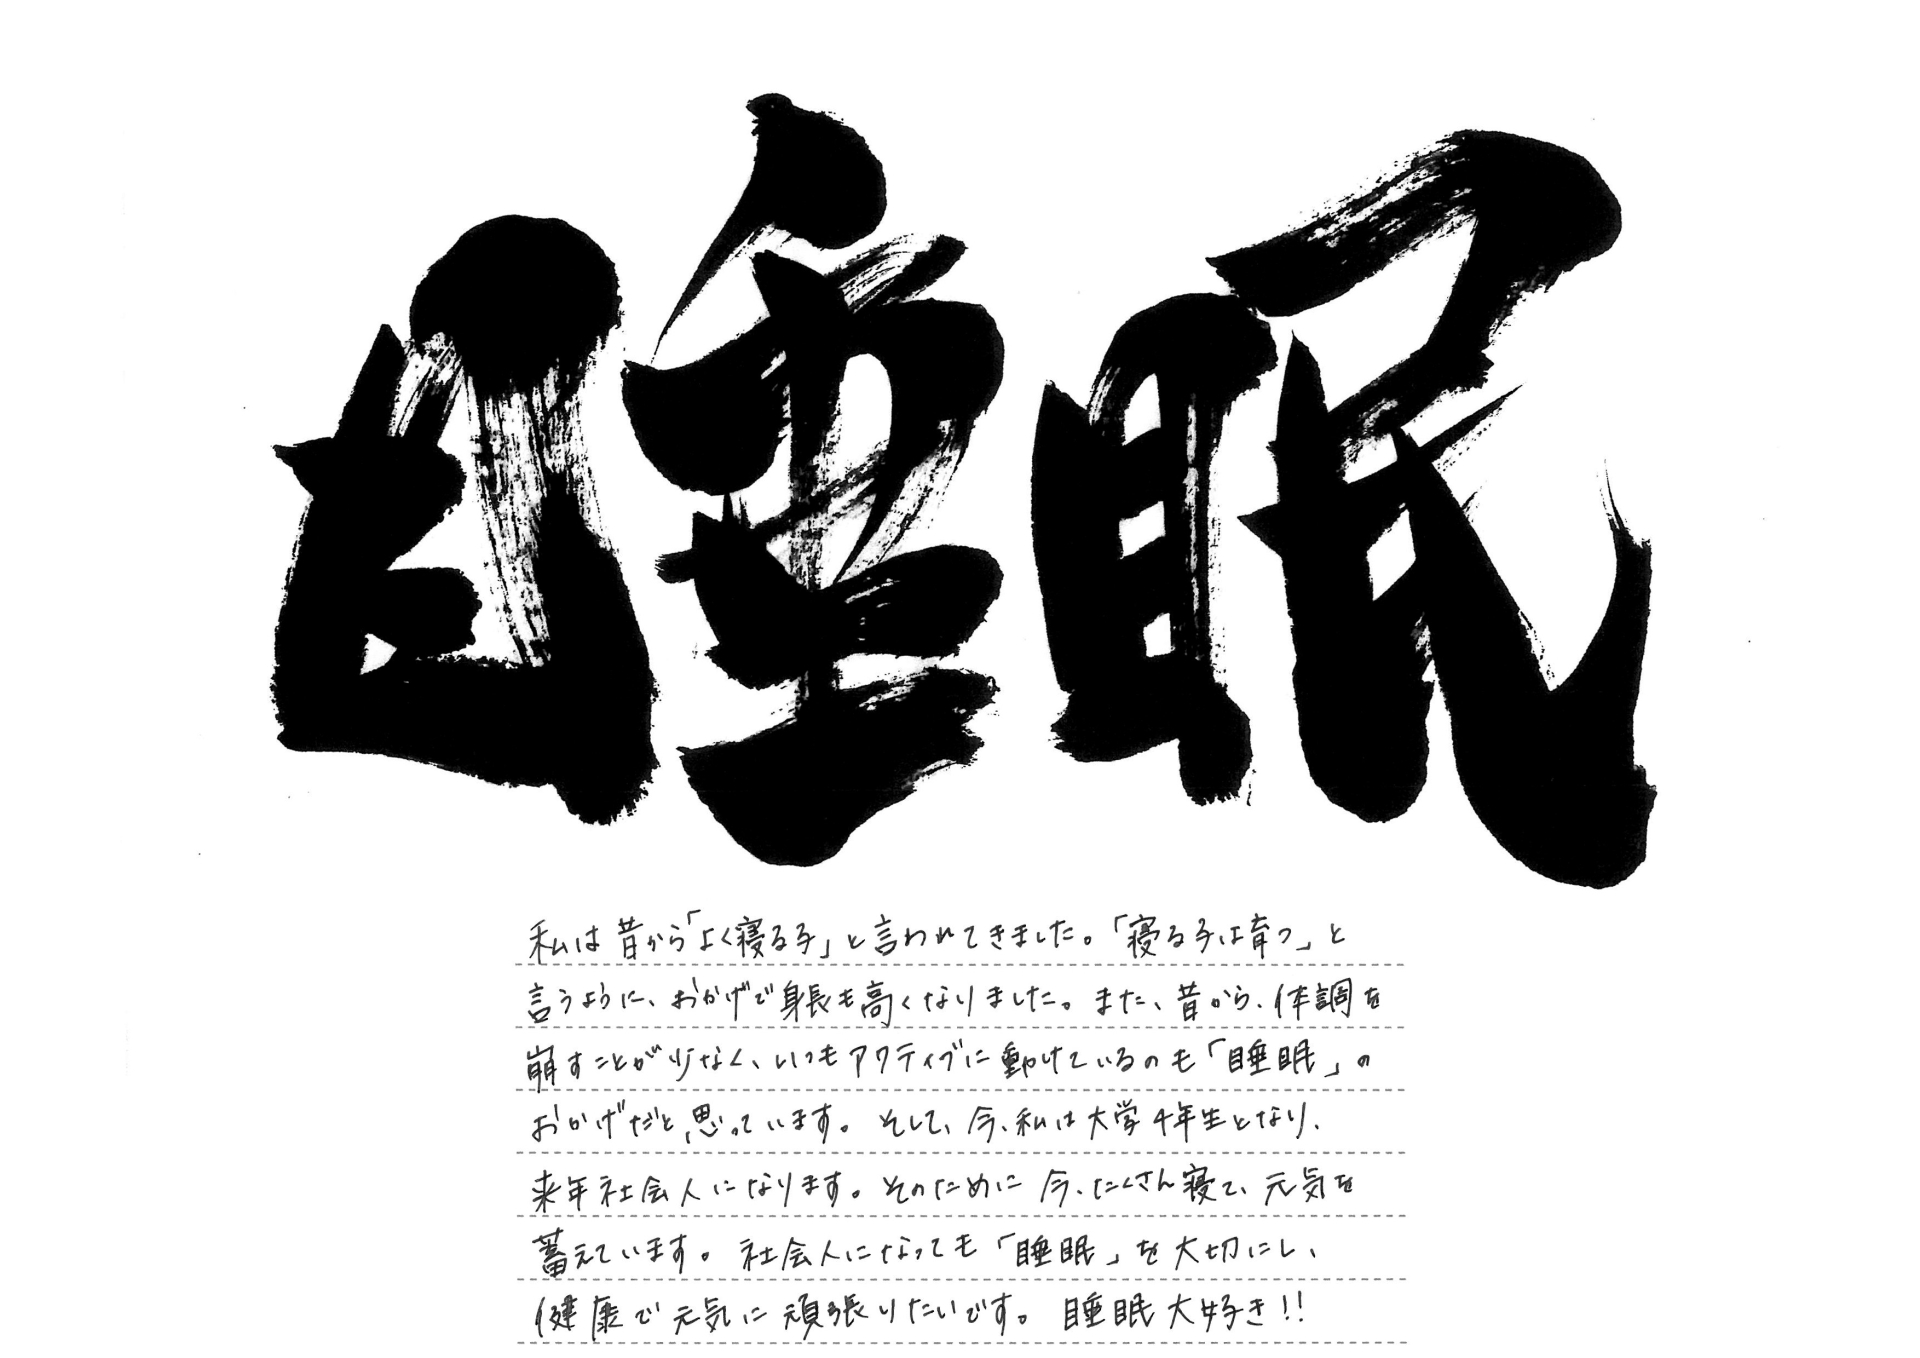 睡眠
私は昔から「よく寝る子」と言われてきました。「寝る子は育つ」と
言うように、おかげで身長も高くなりました。また、昔から、体調を
崩すことが少なく、いつもアクティブに動けているのも「睡眠」の
おかげだと思っています。そして、今、私は大学4年生となり、
来年社会人になります。そのために今、たくさん寝て、元気を
蓄えています。社会人になっても「睡眠」を大切にし、
健康で元気に頑張りたいです。睡眠大好き!!